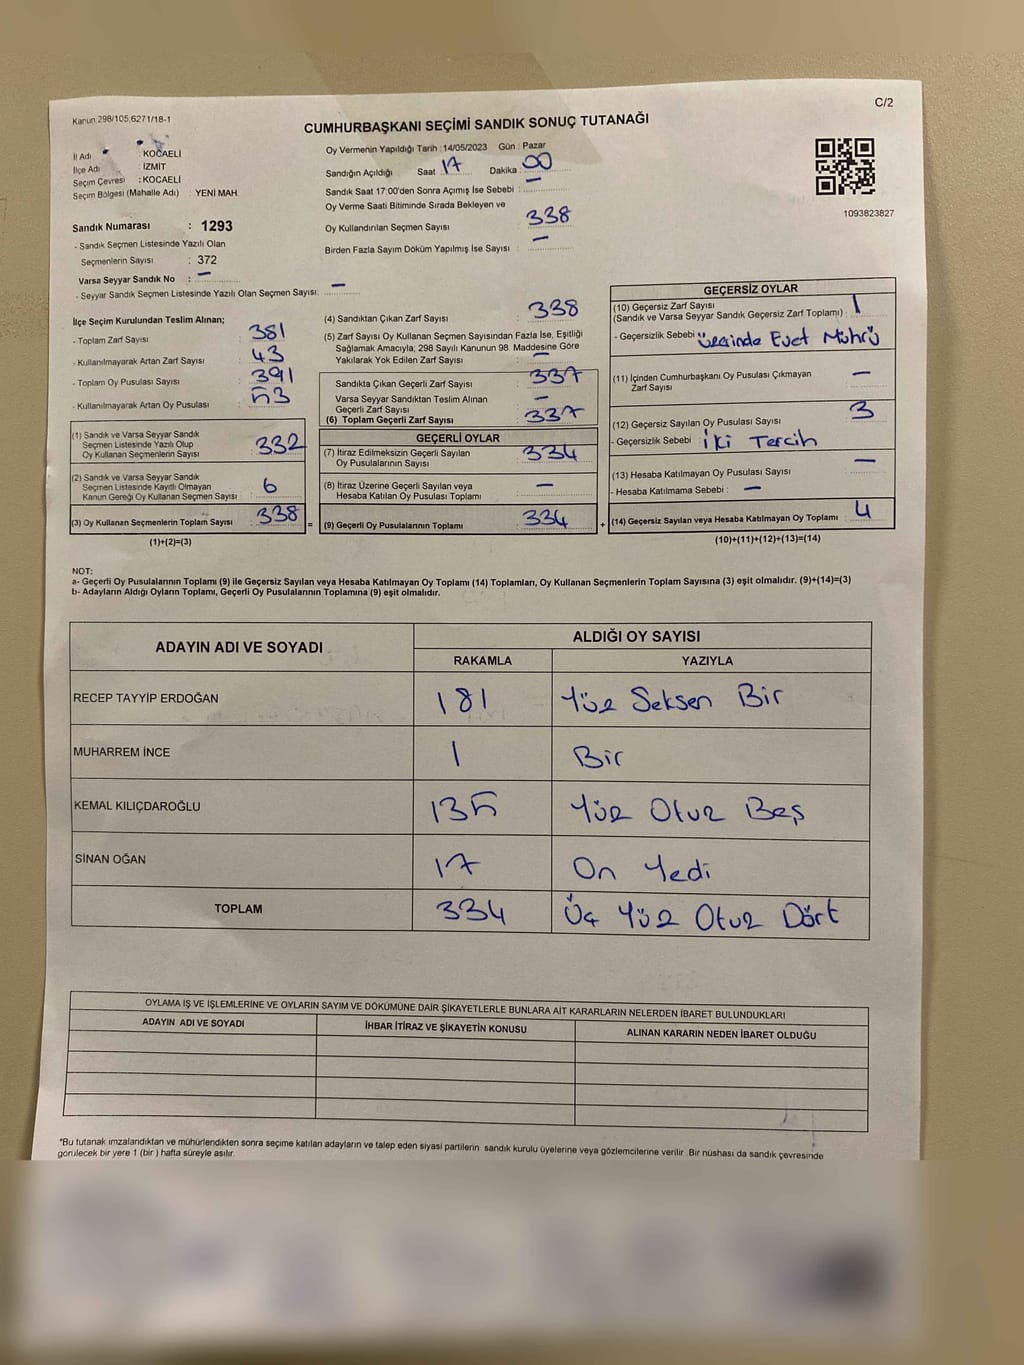 C/2
Kanun:298/105;6271/18-1
CUMHURBAŞKANI SEÇİMİ SANDIK SONUÇ TUTANAĞI
İl Adı : KOCAELİ
İlçe Adı : İZMİT
Seçim Çevresi : KOCAELİ
Seçim Bölgesi (Mahalle Adı) : YENİ MAH.
Sandık Numarası : 1293
- Sandık Seçmen Listesinde Yazılı Olan
Seçmenlerin Sayısı : 372
Varsa Seyyar Sandık No : –
- Seyyar Sandık Seçmen Listesinde Yazılı Olan Seçmen Sayısı: –
Oy Vermenin Yapıldığı Tarih :14/05/2023 Gün : Pazar
Sandığın Açıldığı Saat : 17 Dakika : 00
Sandık Saat 17:00'den Sonra Açımış İse Sebebi : –
Oy Verme Saati Bitiminde Sırada Bekleyen ve
Oy Kullandırılan Seçmen Sayısı : 338
Birden Fazla Sayım Döküm Yapılmış İse Sayısı : –
1093823827
İlçe Seçim Kurulundan Teslim Alınan;
- Toplam Zarf Sayısı : 381
- Kullanılmayarak Artan Zarf Sayısı : 43
- Toplam Oy Pusulası Sayısı : 391
- Kullanılmayarak Artan Oy Pusulası : 53
(1) Sandık ve Varsa Seyyar Sandık
Seçmen Listesinde Yazılı Olup
Oy Kullanan Seçmenlerin Sayısı : 332
(2) Sandık ve Varsa Seyyar Sandık
Seçmen Listesinde Kayıtlı Olmayan
Kanun Gereği Oy Kullanan Seçmen Sayısı : 6
(3) Oy Kullanan Seçmenlerin Toplam Sayısı : 338 =
(1)+(2)=(3)
(4) Sandıktan Çıkan Zarf Sayısı : 338
(5) Zarf Sayısı Oy Kullanan Seçmen Sayısından Fazla İse, Eşitliği
Sağlamak Amacıyla; 298 Sayılı Kanunun 98. Maddesine Göre
Yakılarak Yok Edilen Zarf Sayısı : –
Sandıkta Çıkan Geçerli Zarf Sayısı : 337
Varsa Seyyar Sandıktan Teslim Alınan
Geçerli Zarf Sayısı : –
(6) Toplam Geçerli Zarf Sayısı : 337
GEÇERLİ OYLAR
(7) İtiraz Edilmeksizin Geçerli Sayılan
Oy Pusulalarının Sayısı : 334
(8) İtiraz Üzerine Geçerli Sayılan veya
Hesaba Katılan Oy Pusulası Toplamı : –
(9) Geçerli Oy Pusulalarının Toplamı : 334 +
GEÇERSİZ OYLAR
(10) Geçersiz Zarf Sayısı
(Sandık ve Varsa Seyyar Sandık Geçersiz Zarf Toplamı) : 1
- Geçersizlik Sebebi : üzerinde Evet Mührü
(11) İçinden Cumhurbaşkanı Oy Pusulası Çıkmayan
Zarf Sayısı –
(12) Geçersiz Sayılan Oy Pusulası Sayısı : 3
- Geçersizlik Sebebi : İki Tercih
(13) Hesaba Katılmayan Oy Pusulası Sayısı –
- Hesaba Katılmama Sebebi : –
(14) Geçersiz Sayılan veya Hesaba Katılmayan Oy Toplamı : 4
(10)+(11)+(12)+(13)=(14)
NOT:
a- Geçerli Oy Pusulalarının Toplamı (9) ile Geçersiz Sayılan veya Hesaba Katılmayan Oy Toplamı (14) Toplamları, Oy Kullanan Seçmenlerin Toplam Sayısına (3) eşit olmalıdır. (9)+(14)=(3)
b- Adayların Aldığı Oyların Toplamı, Geçerli Oy Pusulalarının Toplamına (9) eşit olmalıdır.
ADAYIN ADI VE SOYADI ALDIĞI OY SAYISI
RAKAMLA YAZIYLA
RECEP TAYYİP ERDOĞAN 181 Yüz Seksen Bir
MUHARREM İNCE 1 Bir
KEMAL KILIÇDAROĞLU 135 Yüz Otuz Beş
SİNAN OĞAN 17 On Yedi
TOPLAM 334 Üç Yüz Otuz Dört
OYLAMA İŞ VE İŞLEMLERİNE VE OYLARIN SAYIM VE DÖKÜMÜNE DAİR ŞİKAYETLERLE BUNLARA AİT KARARLARIN NELERDEN İBARET BULUNDUKLARI
ADAYIN ADI VE SOYADI İHBAR İTİRAZ VE ŞİKAYETİN KONUSU ALINAN KARARIN NEDEN İBARET OLDUĞU
*Bu tutanak imzalandıktan ve mühürlendikten sonra seçime katılan adayların ve talep eden siyasi partilerin sandık kurulu üyelerine veya gözlemcilerine verilir. Bir nüshası da sandık çevresinde
görülecek bir yere 1 (bir ) hafta süreyle asılır.